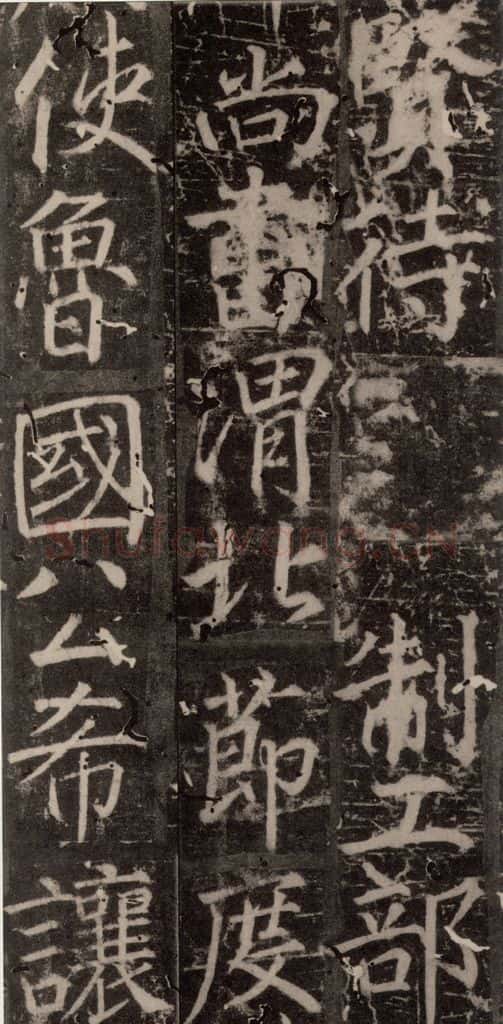 賢待制工部
尚書渭北節度
使魯國公希讓
Shufawang.CN